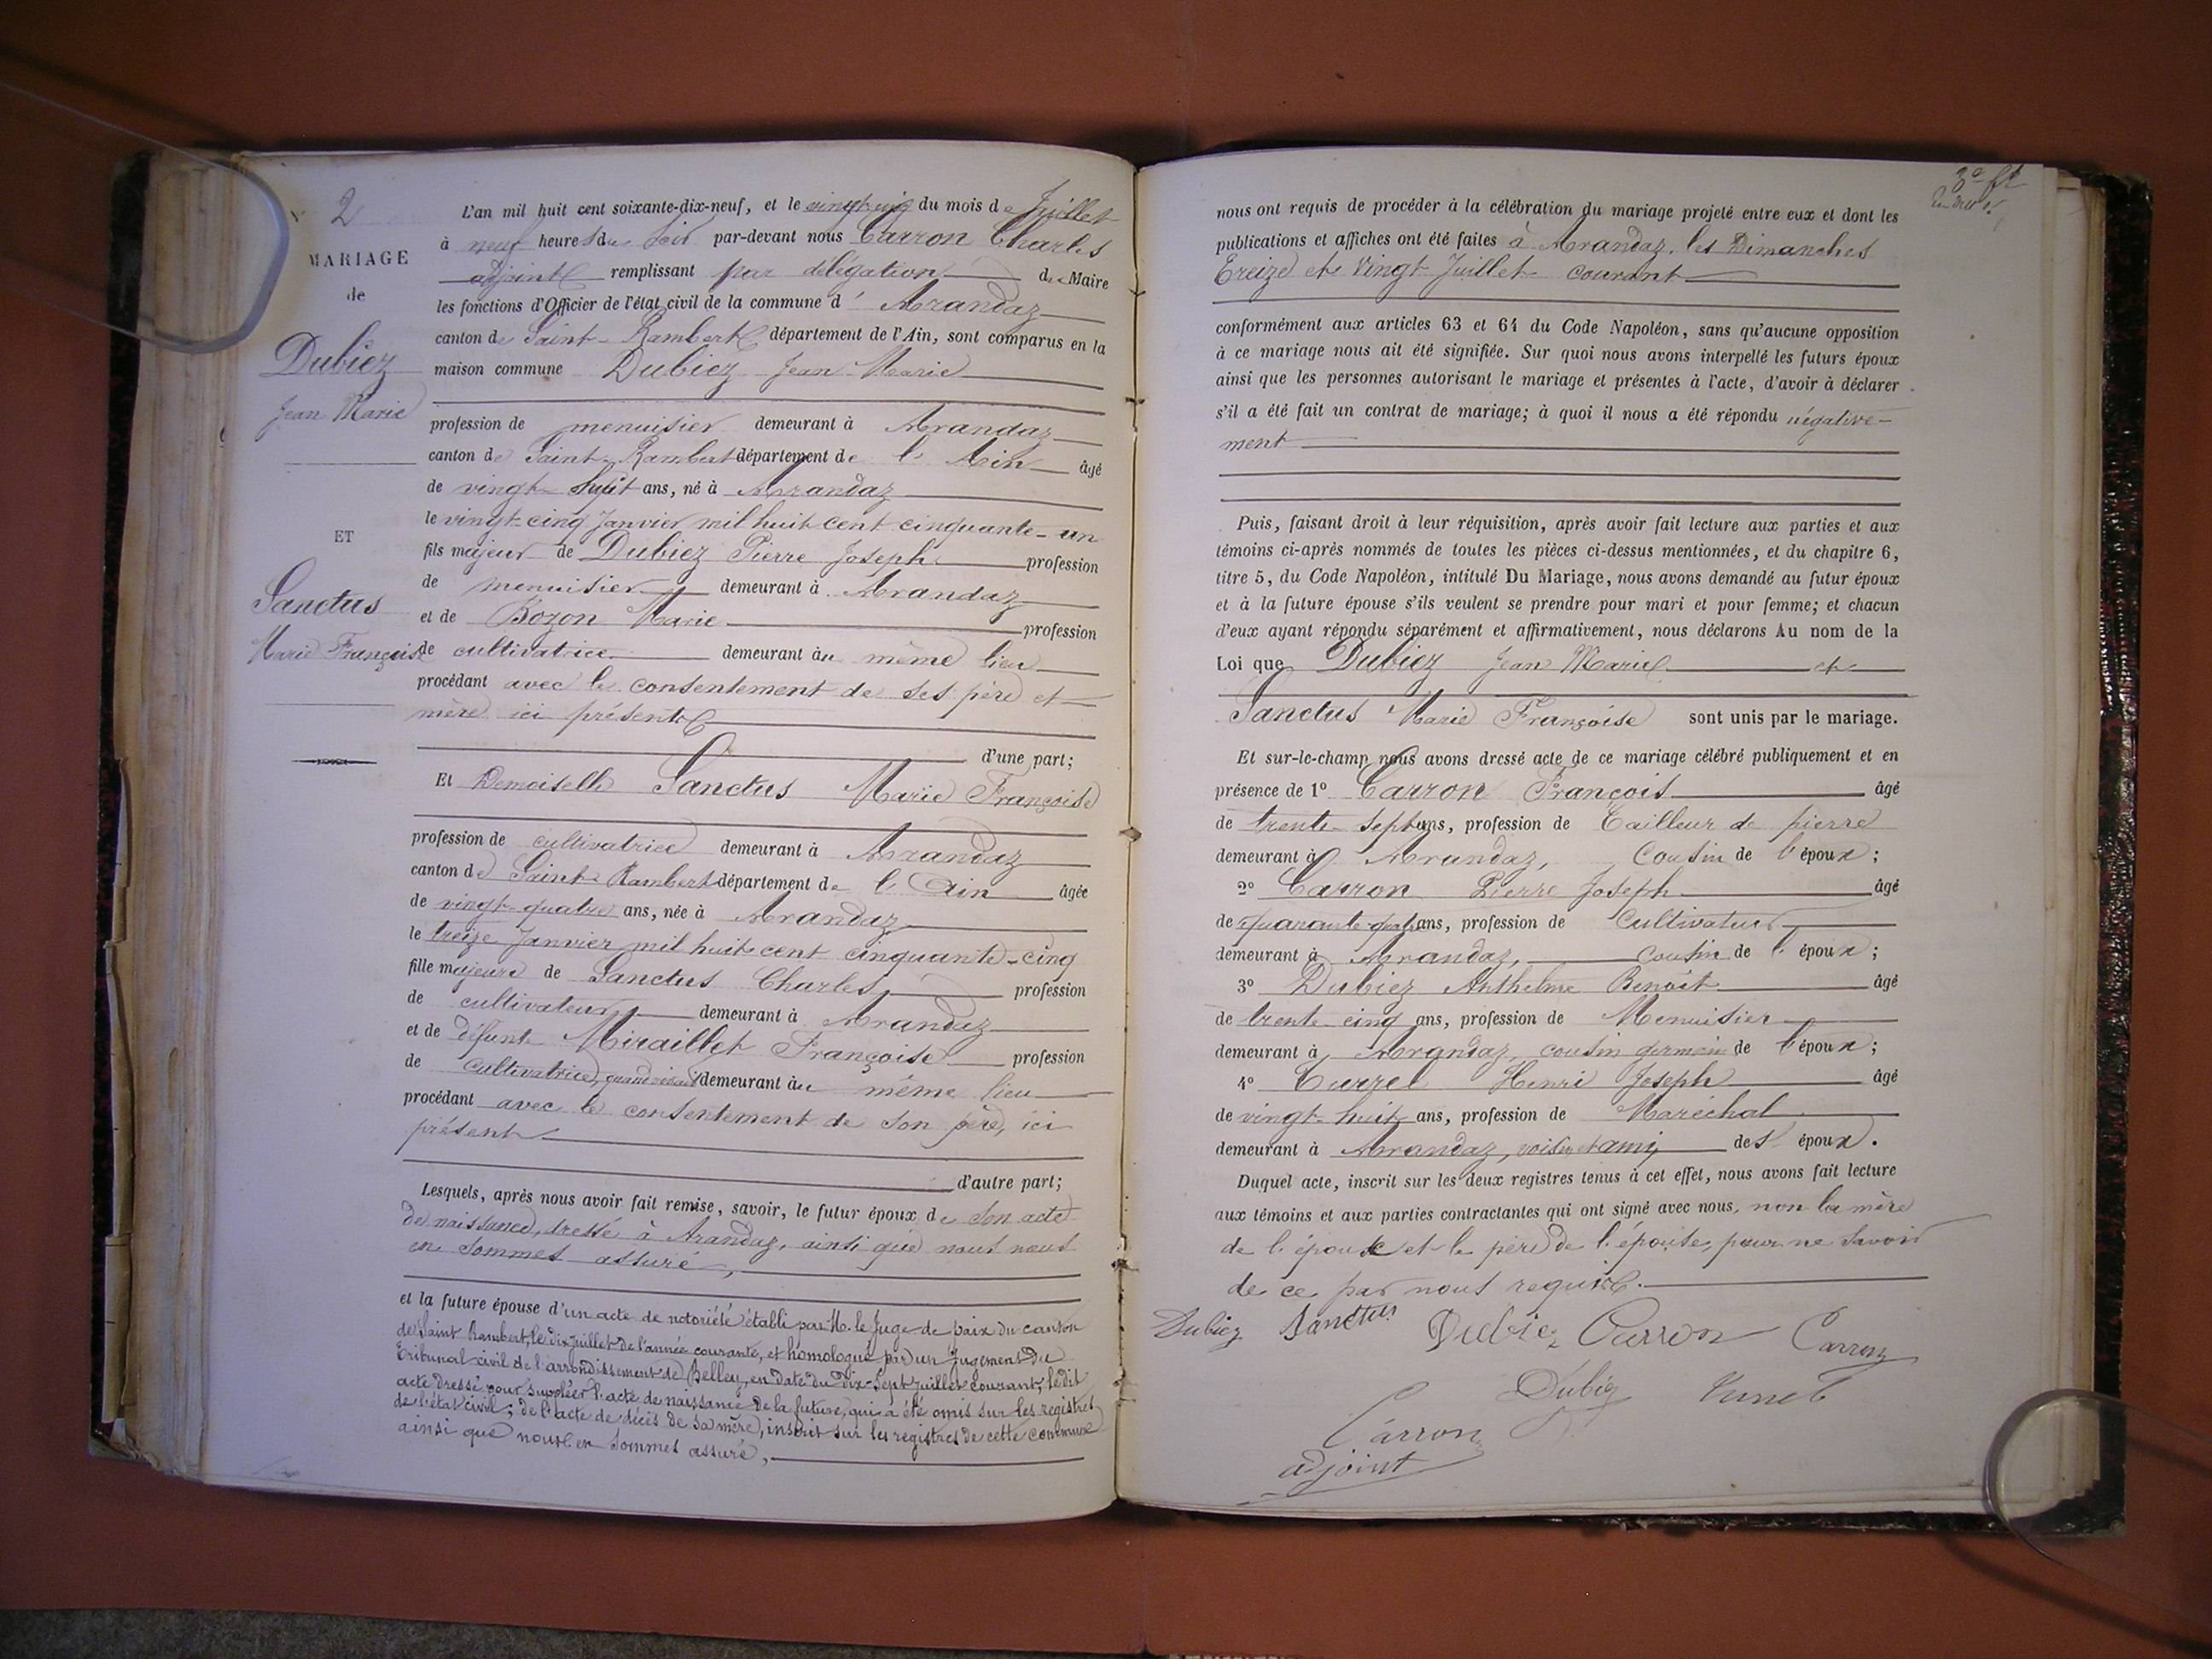 N° 2
MARIAGE
de
Dubiez
Jean Marie
ET
Sanctus
Marie Françoise
L'an mil huit cent soixante-dix-neuf, et le vingt-cinq du mois de Juillet
à neuf heures du soir par-devant nous Carron Charles
adjoint remplissant par délégation du Maire
les fonctions d'Officier de l'état civil de la commune d' Arandaz
canton de Saint-Rambert département de l'Ain, sont comparus en la
maison commune Dubiez Jean Marie
profession de menuisier demeurant à Arandaz
canton de Saint-Rambert département de l'Ain âgé
de vingt-huit ans, né à Arandaz
le vingt-cinq Janvier mil huit cent cinquante-un
fils majeur de Dubiez Pierre Joseph profession
de menuisier demeurant à Arandaz
et de Bozon Marie profession
de cultivatrice demeurant au même lieu
procédant avec le consentement de ses père et
mère ici présents
d'une part;
Et Demoiselle Sanctus Marie Françoise
profession de cultivatrice demeurant à Arandaz
canton de Saint-Rambert département de l'Ain âgée
de vingt-quatre ans, née à Arandaz
le treize Janvier mil huit cent cinquante-cinq
fille majeure de Sanctus Charles, profession
de cultivateur demeurant à Arandaz
et de défunte Miraillet Françoise profession
de cultivatrice, quand vivait demeurant au même lieu
procédant avec le consentement de son père, ici
présent
d'autre part;
Lesquels, après nous avoir fait remise, savoir, le futur époux de son acte
de naissance, dressé à Arandaz, ainsi que nous nous
en sommes assuré,
et la future épouse d'un acte de notoriété établi par M. le Juge de paix du canton
de Saint Rambert, le dix juillet de l'année courante, et homologué par un jugement du
Tribunal civil de l'arrondissement de Belley, en date du dix-sept juillet courant, ledit
acte dressé pour suppléer l'acte de naissance de la future, qui a été omis sur les registres
de l'état civil; de l'acte de décès de sa mère, inscrit sur les registres de cette commune
ainsi que nous en sommes assuré,
nous ont requis de procéder à la célébration du mariage projeté entre eux et dont les
publications et affiches ont été faites à Arandaz, les Dimanches
Treize et Vingt Juillet courant
conformément aux articles 63 et 64 du Code Napoléon, sans qu'aucune opposition
à ce mariage nous ait été signifiée. Sur quoi nous avons interpellé les futurs époux
ainsi que les personnes autorisant le mariage et présentes à l'acte, d'avoir à déclarer
s'il a été fait un contrat de mariage; à quoi il nous a été répondu négative-
ment
Puis, faisant droit à leur réquisition, après avoir fait lecture aux parties et aux
témoins ci-après nommés de toutes les pièces ci-dessus mentionnées, et du chapitre 6,
titre 5, du Code Napoléon, intitulé Du Mariage, nous avons demandé au futur époux
et à la future épouse s'ils veulent se prendre pour mari et pour femme; et chacun
d'eux ayant répondu séparément et affirmativement, nous déclarons Au nom de la
Loi que Dubiez Jean Marie et
Sanctus Marie Françoise sont unis par le mariage.
Et sur-le-champ nous avons dressé acte de ce mariage célébré publiquement et en
présence de 1° Carron François âgé
de trente-sept ans, profession de Tailleur de pierre
demeurant à Arandaz, Cousin de l'époux;
2° Carron Pierre Joseph âgé
de quarante-quatre ans, profession de Cultivateur
demeurant à Arandaz, cousin de l'époux;
3° Dubiez Anthelme Benoît âgé
de trente-cinq ans, profession de Menuisier
demeurant à Arandaz, cousin germain de l'époux;
4° Henri Joseph âgé
de vingt-huit ans, profession de Maréchal
demeurant à Arandaz, voisin et ami, des époux.
Duquel acte, inscrit sur les deux registres tenus à cet effet, nous avons fait lecture
aux témoins et aux parties contractantes qui ont signé avec nous, non la mère
de l'époux et le père de l'épouse, pour ne savoir
de ce par nous requis.
Dubiez Sanctus Dubiez Carron Carron
Dubiez
Carron
adjoint